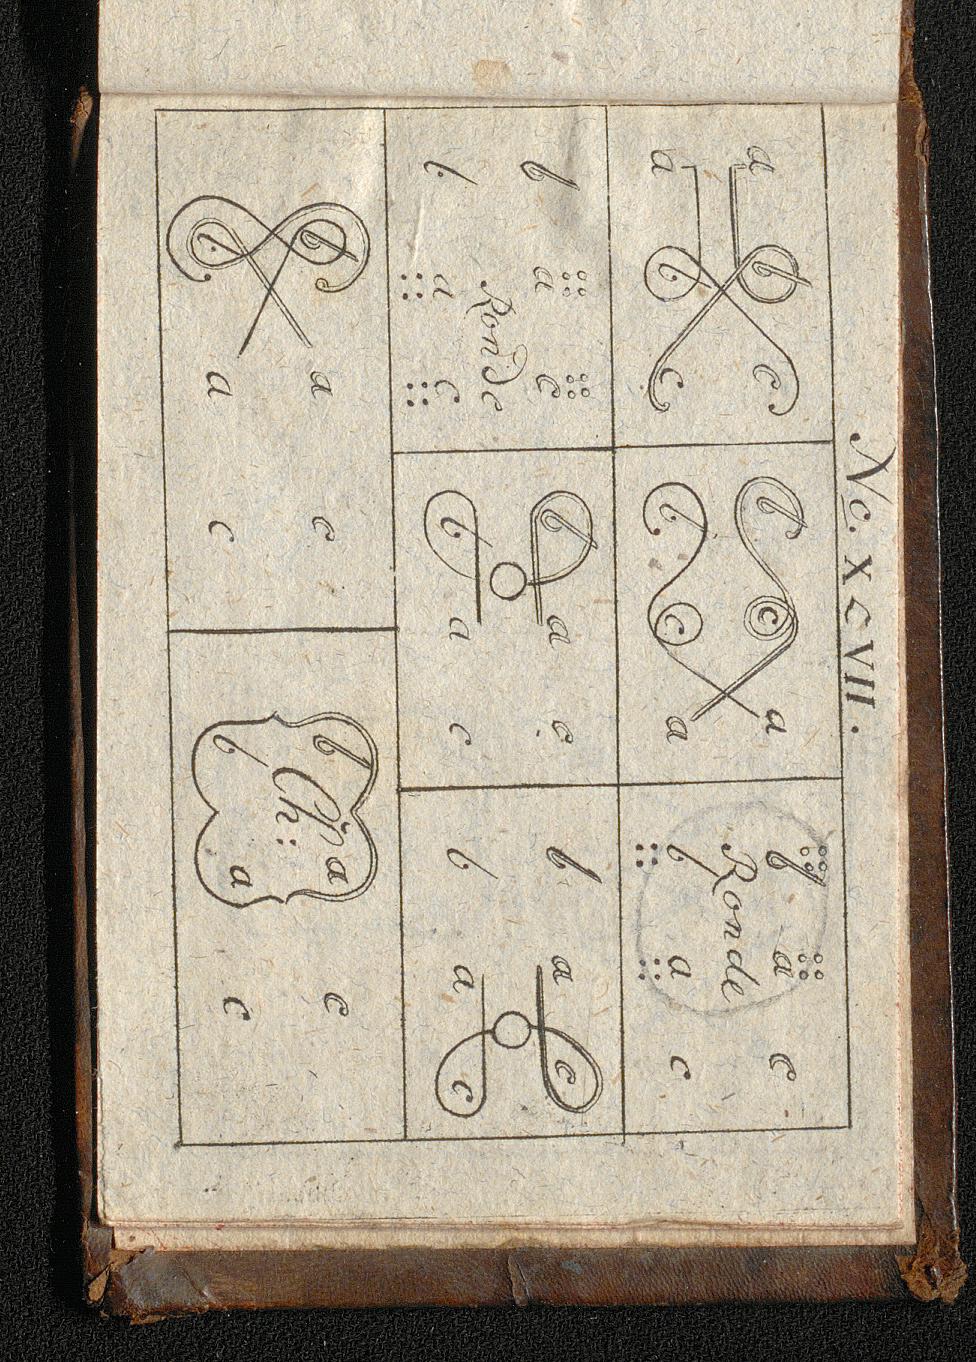 No. XCVII.
a b c
a b c
b c a
b c a
b a c
Ronde
b a c
b a c
Ronde
b a c
b a c
b a c
b a c
b a c
b a c
b a c
b a c
Ch:
b a c